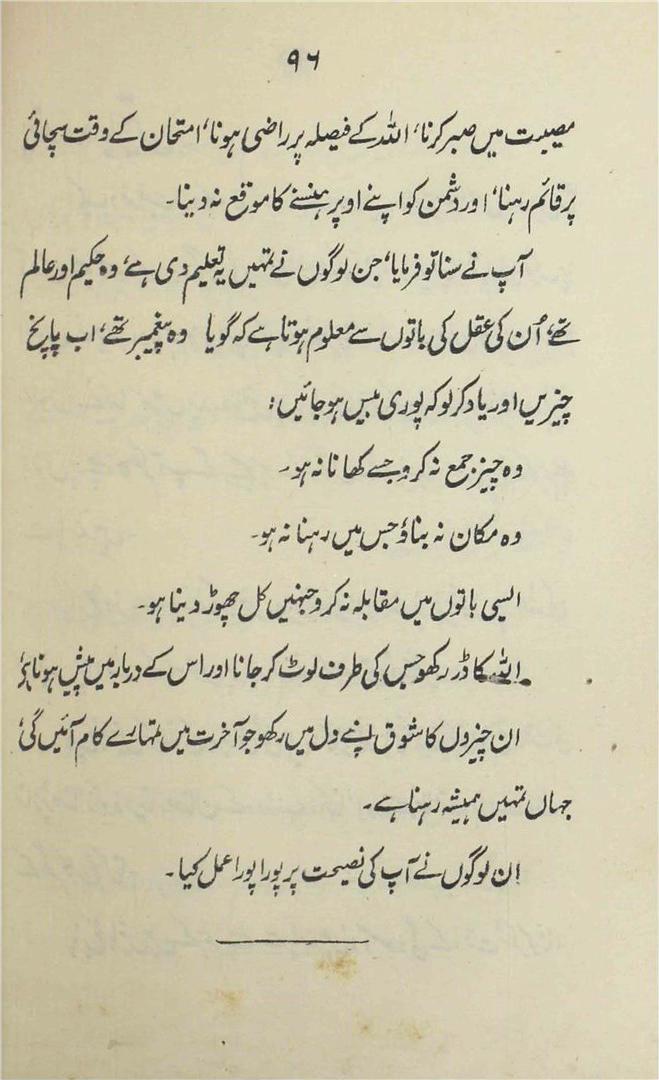 ۹۶
مصیبت میں صبر کرنا، اللہ کے فیصلہ پر راضی ہونا، امتحان کے وقت سچائی
پر قائم رہنا، اور دشمن کو اپنے اوپر ہنسنے کا موقع نہ دینا۔
آپ نے سنا تو فرمایا، جن لوگوں نے تمہیں یہ تعلیم دی ہے، وہ حکیم اور عالم
تھے، اُن کی عقل کی باتوں سے معلوم ہوتا ہے کہ گویا وہ پیغمبر تھے، اب پانچ
چیزیں اور یاد کر لو کہ پوری بیس ہو جائیں:
وہ چیز جمع نہ کرو جسے کھانا نہ ہو۔
وہ مکان نہ بناؤ جس میں رہنا نہ ہو۔
ایسی باتوں میں مقابلہ نہ کرو جنہیں کل چھوڑ دینا ہو۔
اللہ کا ڈر رکھو جس کی طرف لوٹ کر جانا اور اس کے دربار میں پیش ہونا ہے،
ان چیزوں کا شوق اپنے دل میں رکھو جو آخرت میں تمہارے کام آئیں گی،
جہاں تمہیں ہمیشہ رہنا ہے۔
ان لوگوں نے آپ کی نصیحت پر پورا پورا عمل کیا۔